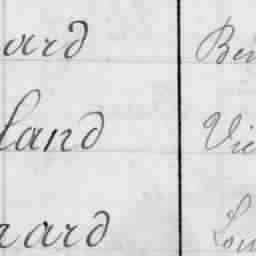 ard Ben
land Vic
nard Lou